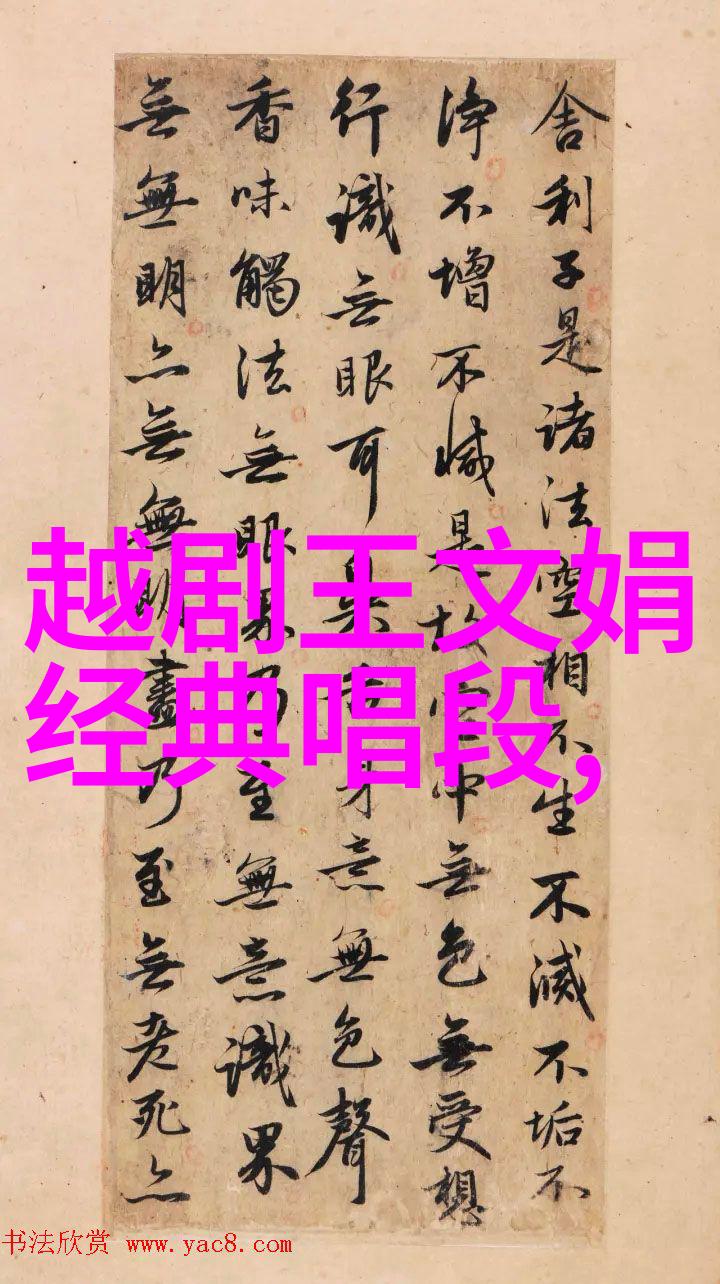 舍利子是諸法空相不生不滅不垢不
淨不增不減是故空中無色無受想
行識無眼耳鼻舌身意無色聲
香味觸法無眼界乃至無意識界
無無明亦無無明盡乃至無老死亦
越剧王文娟
经典唱段,
书法欣赏 www.yac8.com